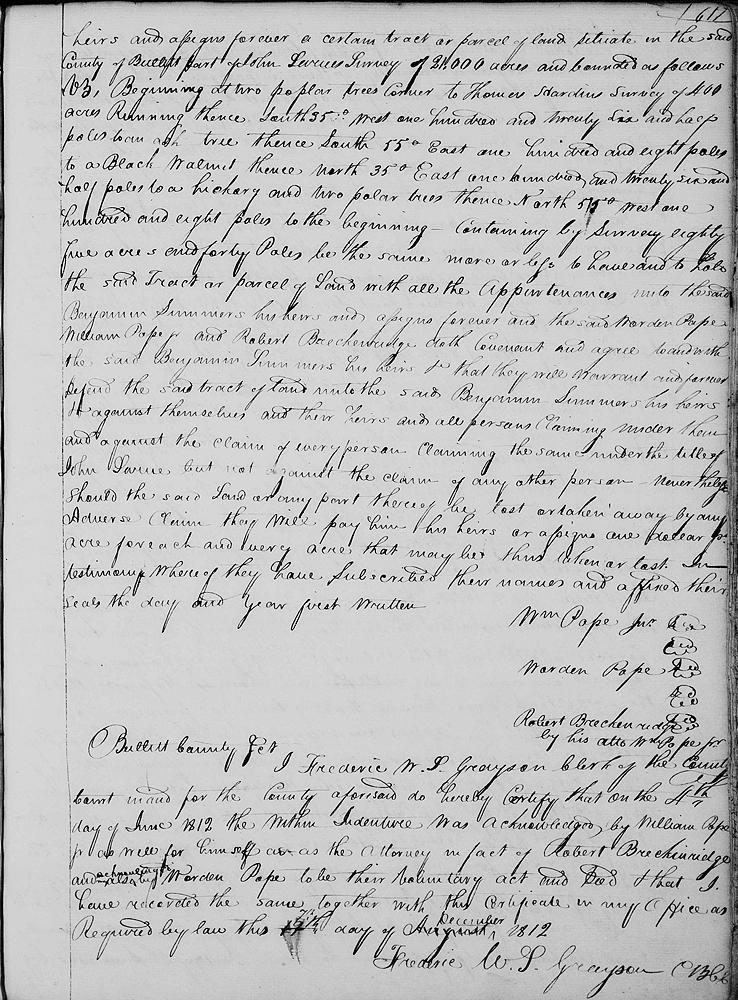 617
heirs and assigns forever a certain tract or parcel of land situate in the said
County of Bullitt part of John Lewises Survey of 21,000 acres and bounded as follows
Viz, Beginning at two poplar trees Corner to Thomas Hardins Survey of 400
acres Running thence South 35° West one hundred and twenty six and half
poles to an ash tree thence South 55° East one hundred and eight poles
to a Black Walnut thence North 35° East one hundred and twenty six and
half poles to a hickory and two polar trees thence North 55° West one
hundred and eight poles to the beginning - Containing by Survey eighty
five acres and forty Poles be the same more or less to have and to hold
the said Tract or parcel of Land with all the Appurtenances unto the said
Benjamin Summers his heirs and assigns forever and the said Worden Pape
William Pape jr and Robert Brechenridge doth Covenant and agree to and with
the said Benjamin Summers his heirs &c that they will Warrant and forever
defend the said tract of land unto the said Benjamin Summers his heirs
&c against themselves and their heirs and all persons Claiming under them
and against the claim of every person Claiming the same under the title of
John but not against the claim of any other person - Nevertheless
should the said Land or any part thereof be lost or taken away by any
Adverse Claim they will pay him his heirs or assigns one dolear pr
acre for each and every acre that may be thus taken or lost In
testimony Where of they have Subscribed their names and affixed their
seals the day and year first Written
Wm Pape Junr
Worden Pape
Robert Brechenridge
by his atto Wm Pape jr
Bullitt County Sct
I Frederic W. S. Grayson Clerk of the County
Court in and for the County aforesaid do hereby Certify that on the 4th
day of June 1812 the Within Indenture Was acknowledged by William Pape
jr as well for himself as as the Attorney in fact of Robert Brechinridge
and acknowledged also by Worden Pape to be their Voluntary act and Deed & that I
have recorded the same together with this Certificate in my Office as
Required by law this day of December 1812
Frederic W. S. Grayson CBCC